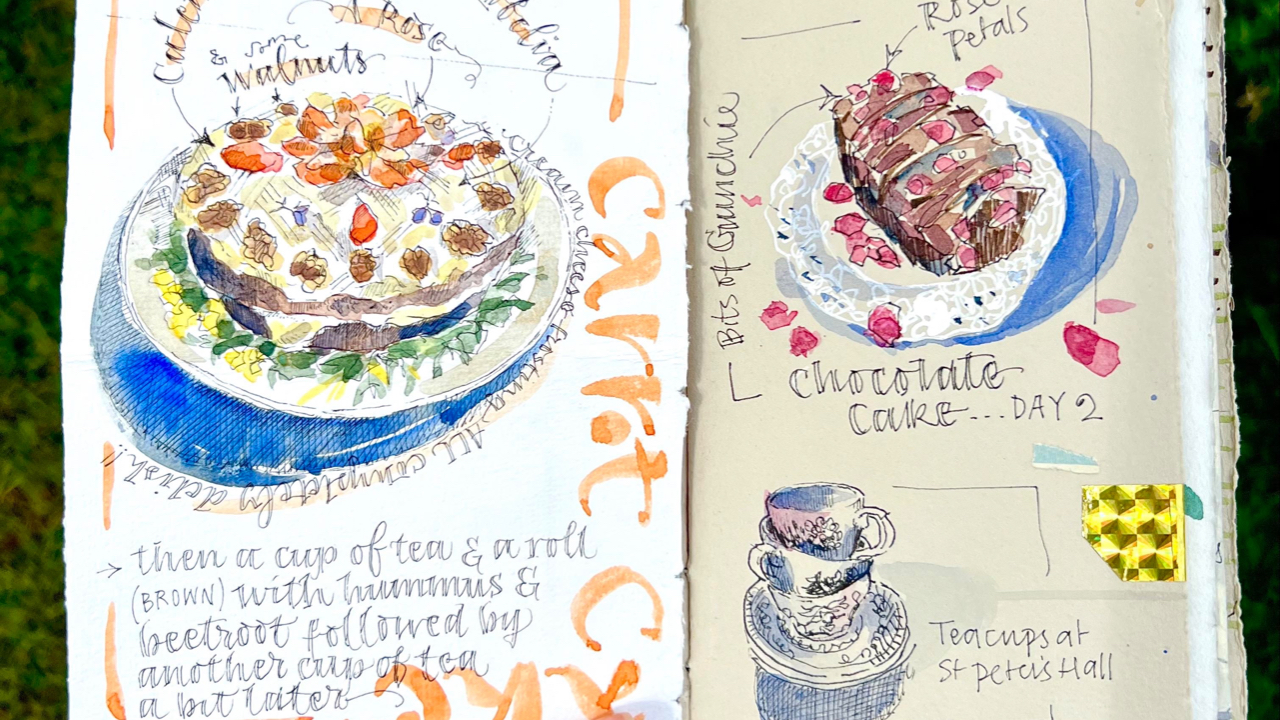 A Rose
& some
walnuts
cream cheese frosting
ALL completely delish!!
carrot
then a cup of tea & a roll
(BROWN) with hummus &
beetroot followed by
another cup of tea
a bit later
Rose
Petals
Bits of Crunchie
chocolate
cake... DAY 2
Teacups at
St Peter's Hall